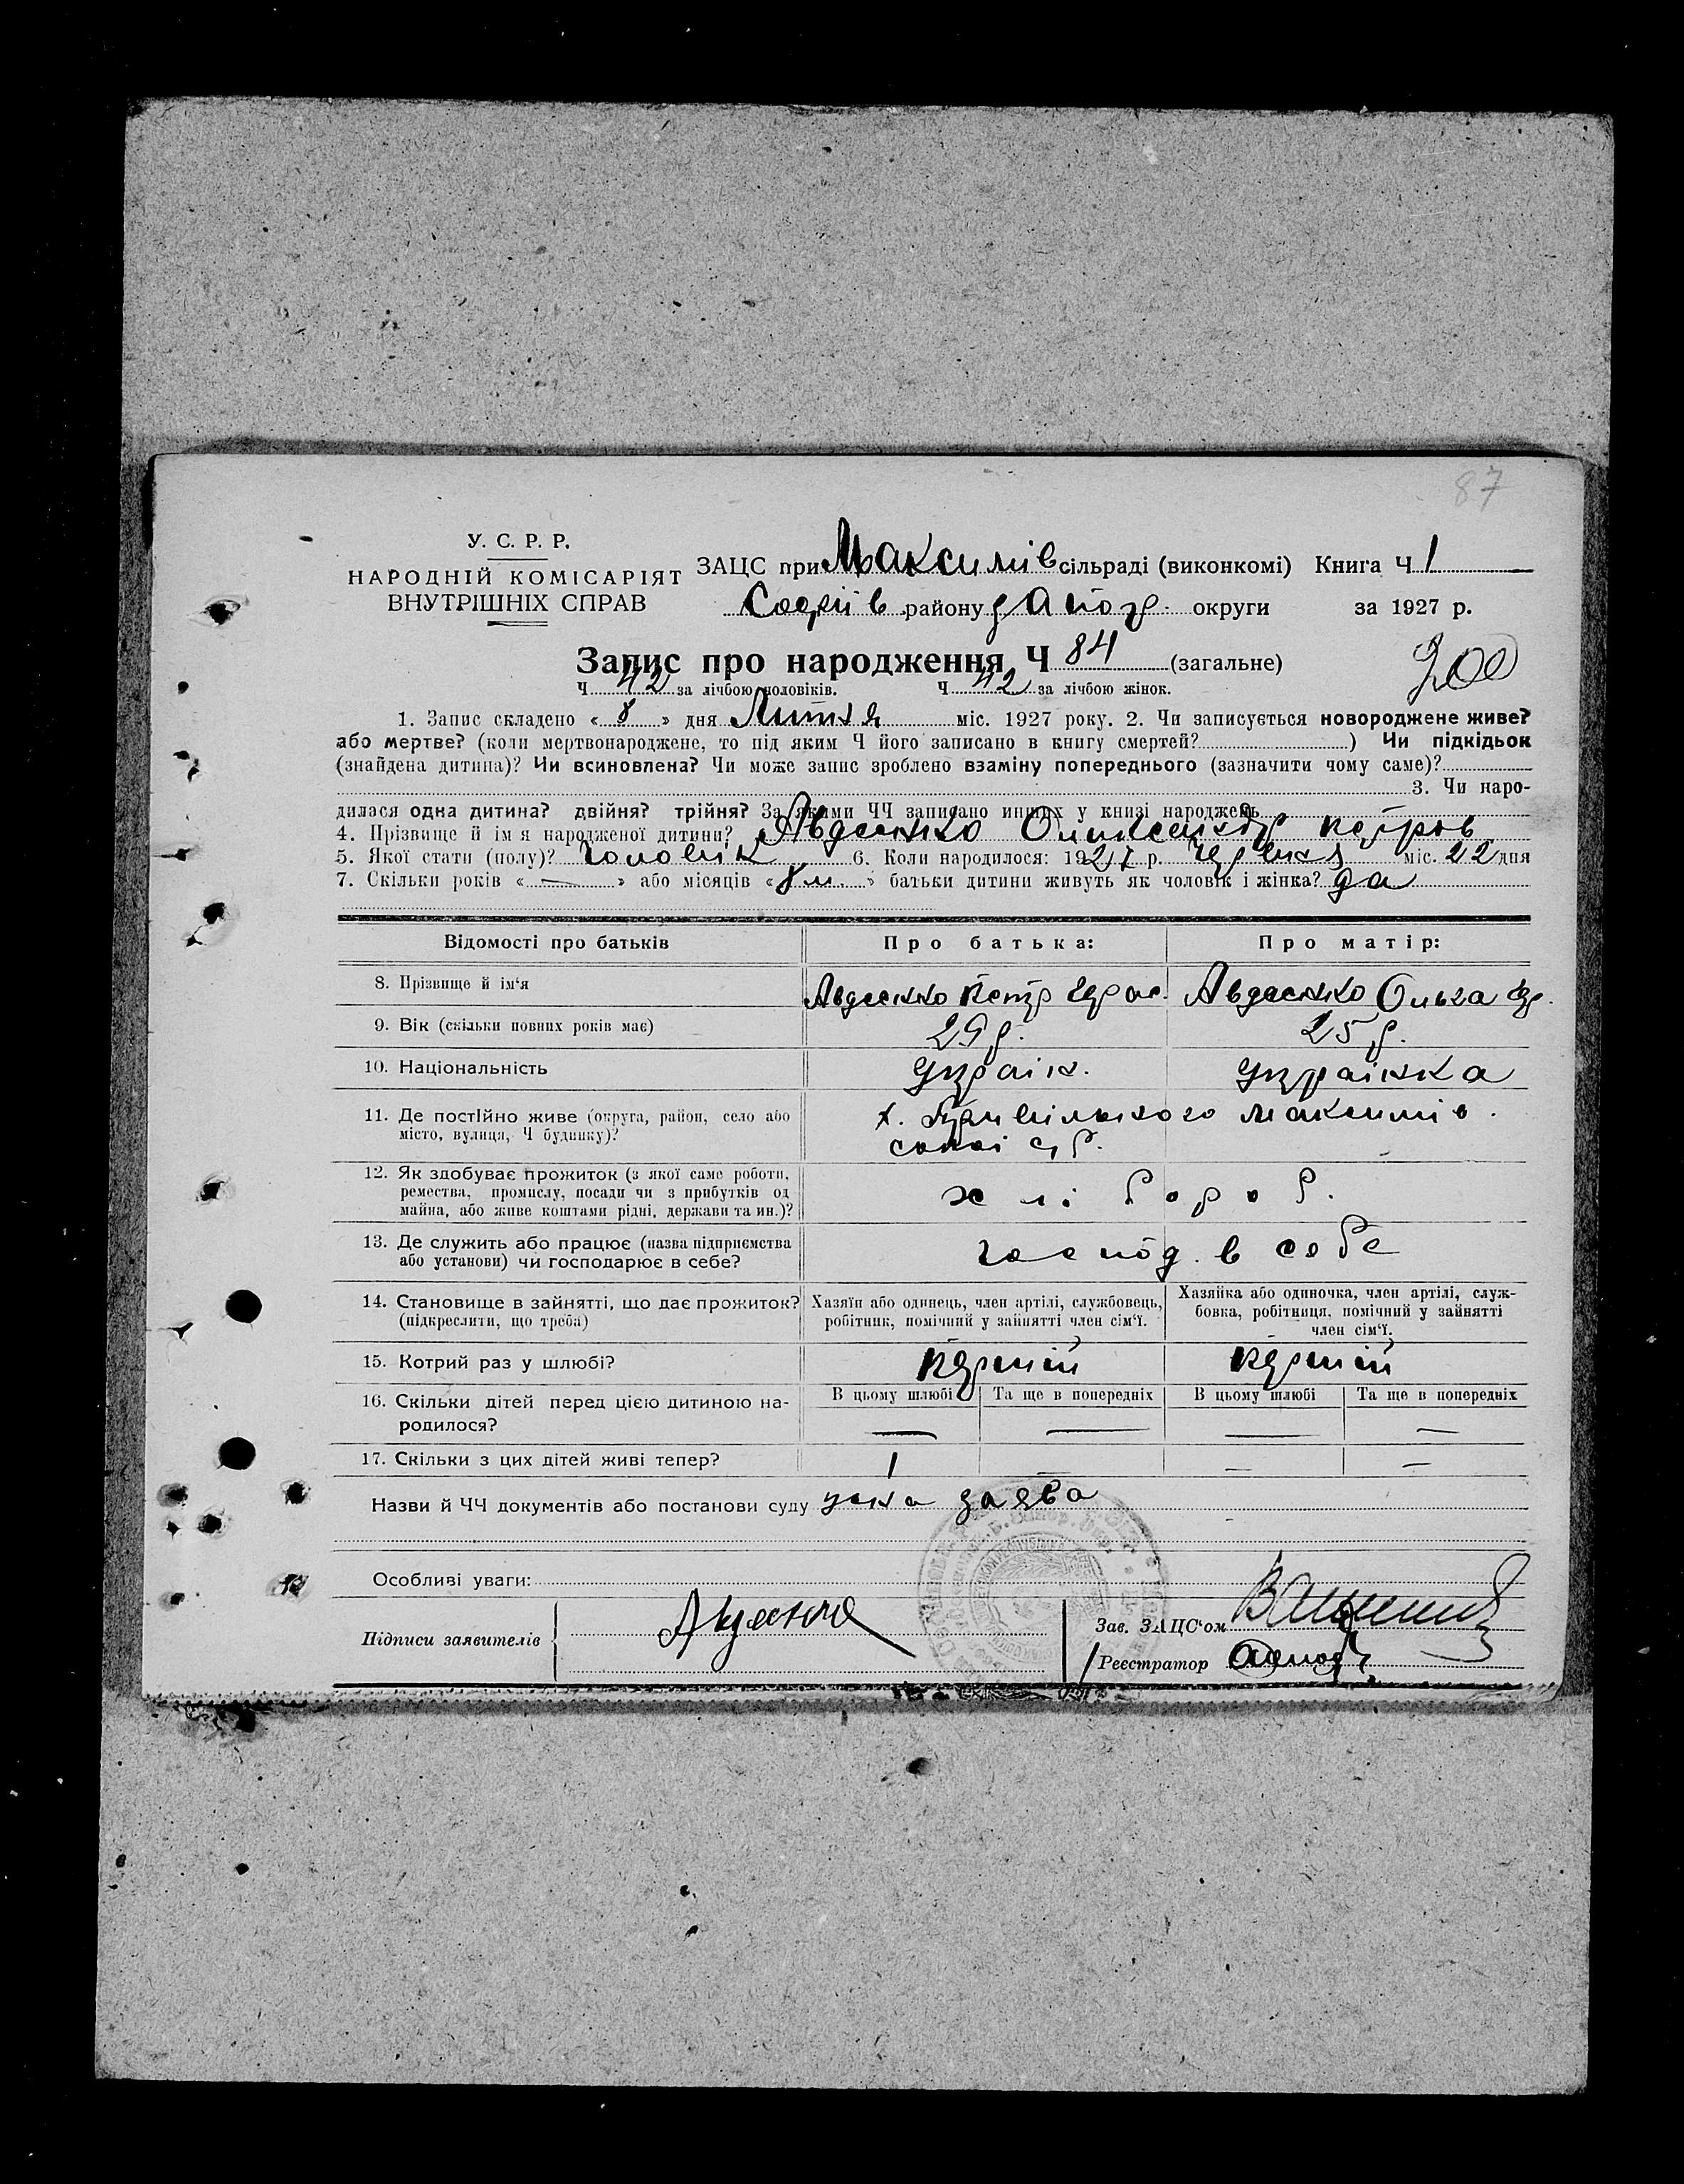 87
У. С. Р. Р.
НАРОДНІЙ КОМІСАРІЯТ
ВНУТРІШНІХ СПРАВ
ЗАЦС при Максимів сільраді (виконкомі) Книга Ч 1
Софіїв району Запоз. округи за 1927 р.
Запис про народження Ч 84 (загальне)
Ч 42 за лічбою чоловіків. Ч 42 за лічбою жінок.
1. Запис складено « 8 » дня Липня міс. 1927 року. 2. Чи записується новороджене живе?
або мертве? (коли мертвонароджене, то під яким Ч його записано в книгу смертей? ) Чи підкідьок
(знайдена дитина)? Чи всиновлена? Чи може запис зроблено взаміну попереднього (зазначити чому саме)?
3. Чи наро-
дилася одна дитина? двійня? трійня? За якими ЧЧ записано инших у книзі народжень
4. Прізвище й ім'я народженої дитини? Авдеенко Олександр Петров
5. Якої стати (полу)? Чоловік 6. Коли народилося: 1927 р. Червня міс. 22 дня
7. Скільки років « — » або місяців « 8 м. » батьки дитини живуть як чоловік і жінка? да
Відомості про батьків
Про батька:
Про матір:
8. Прізвище й ім'я Авдеенко Петр Авдеенко Ольга
9. Вік (скільки повних років має) 29 р. 25 р.
10. Національність Україн. Українка
11. Де постійно живе (округа, район, село або
місто, вулиця, Ч будинку)?
х. Максимів.
12. Як здобуває прожиток (з якої саме роботи,
ремества, промислу, посади чи з прибутків од
майна, або живе коштами рідні, держави та ин.)?
хлібороб.
13. Де служить або працює (назва підприємства
або установи) чи господарює в себе?
господ. в себе
14. Становище в зайнятті, що дає прожиток?
(підкреслити, що треба)
Хазяїн або одинець, член артілі, службовець,
робітник, помічний у зайнятті член сім'ї.
Хазяйка або одиночка, член артілі, служ-
бовка, робітниця, помічний у зайнятті
член сім'ї.
15. Котрий раз у шлюбі? Перший Перший
В цьому шлюбі Та ще в попередніх В цьому шлюбі Та ще в попередніх
16. Скільки дітей перед цією дитиною на-
родилося? — — — —
17. Скільки з цих дітей живі тепер? 1 — — —
Назви й ЧЧ документів або постанови суду усна заява
Особливі уваги:
Підписи заявителів
Зав. ЗАЦС'ом
Реєстратор